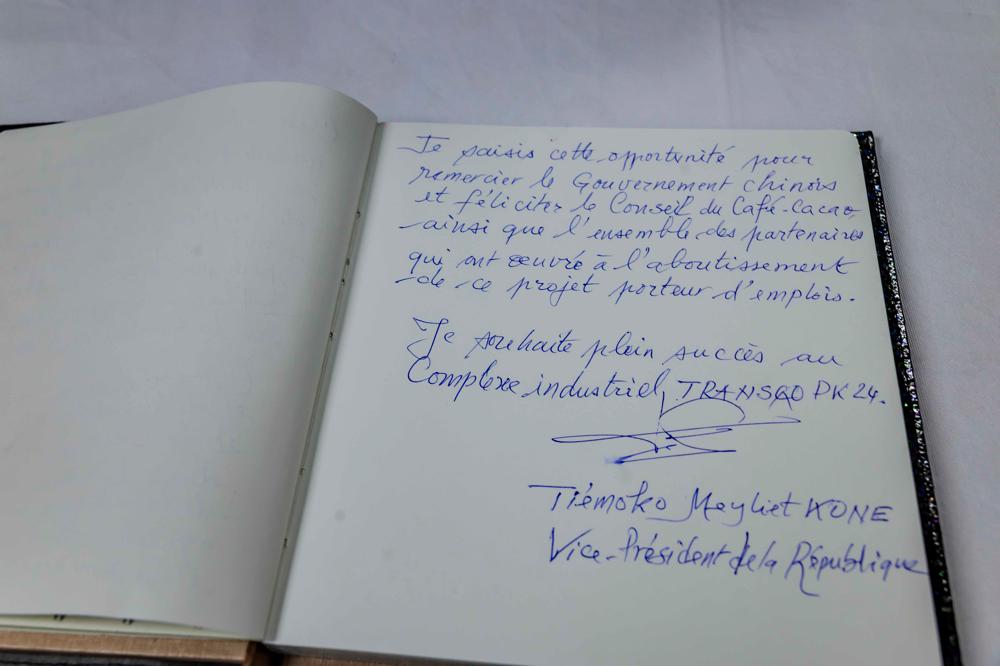 Je saisis cette opportunité pour
remercier le Gouvernement chinois
et féliciter le Conseil du Café-Cacao,
ainsi que l'ensemble des partenaires
qui ont œuvré à l'aboutissement
de ce projet porteur d'emplois.
Je souhaite plein succès au
Complexe industriel TRANSCAO PK 24.
Tiémoko Meyliet KONE
Vice-Président de la République